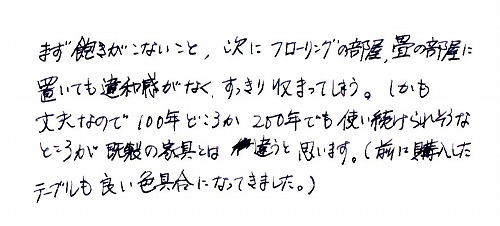 まず飽きがこないこと，次にフローリングの部屋，畳の部屋に
置いても違和感がなく，すっきり収まってしまう。しかも
丈夫なので100年どころか200年でも使い続けられそうな
ところが既製の家具とは違うと思います。(前に購入した
テーブルも良い色具合になってきました。)